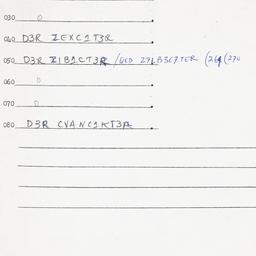 030 0
040 D3R ZEXC1T3R
050 D3R Z1B1CT3R /GED 271B3C7TER (264(270
060 0
070 0
080 D3R CVANC1KT3R